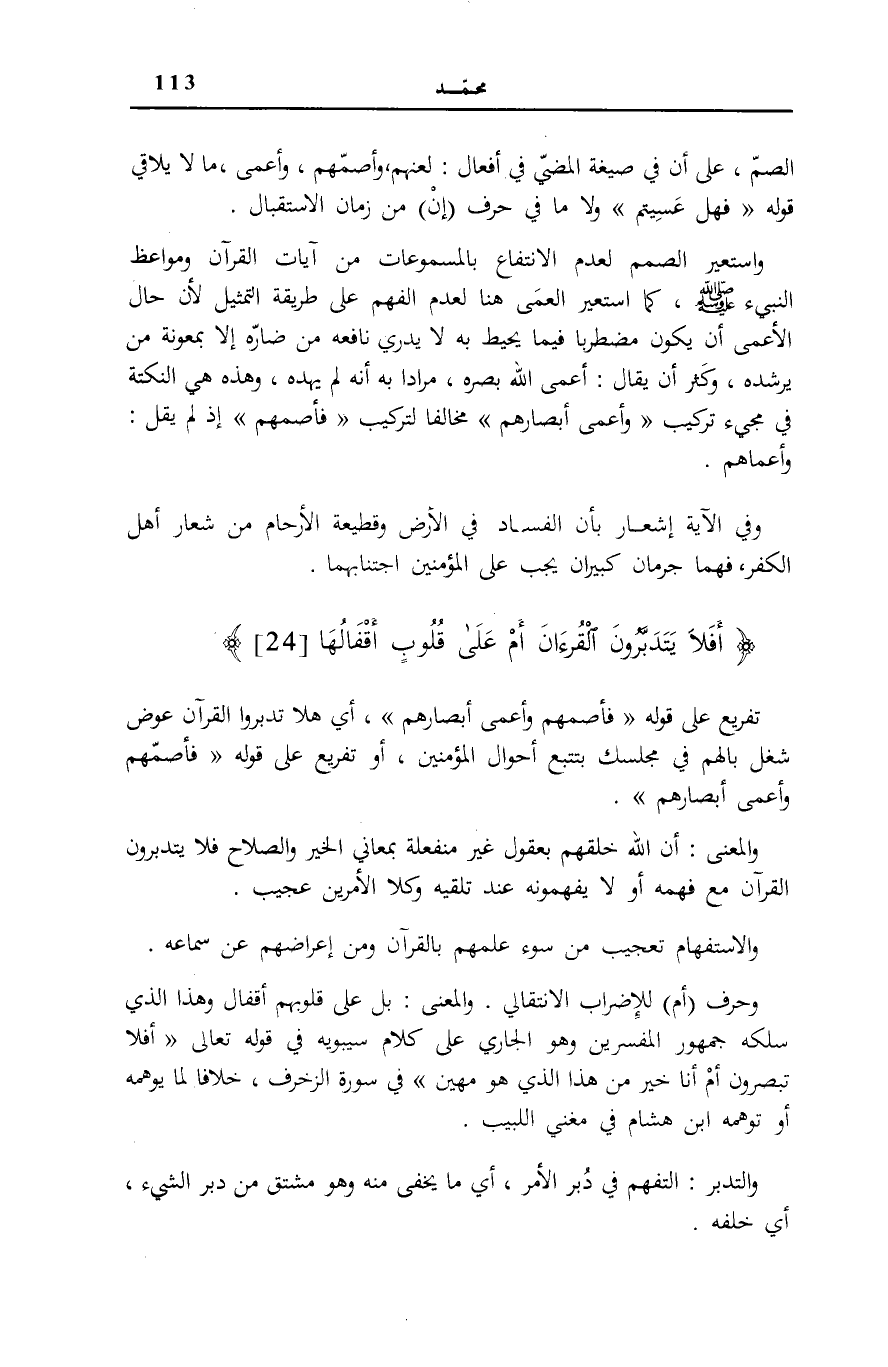 محمّـــد 113
الصمّ ، على أن في صيغة المضيّ في أفعال : لعنهم،وأصمّهم ، وأعمى ،ما لا يلاقي
قوله « فهل عَسِيتم » ولا ما في حرف (إنْ) من زمان الاستقبال .
واستعير الصمم لعدم الانتفاع بالمسموعات من آيات القرآن ومواعظ
النبيء ﷺ ، كما استعير العمَى هنا لعدم الفهم على طريقة التمثيل لأن حال
الأعمى أن يكون مضطربا فيما يحيط به لا يدري نافعه من ضارّه إلا بمعونة من
يرشده ، وكَثر أن يقال : أعمى الله بصره ، مرادا به أنه لم يهده ، وهذه هي النكتة
في مجيء تركيب « وأعمى أبصارهم » مخالفا لتركيب « فأصمهم » إذ لم يقل :
وأعماهم .
وفي الآية إشعـار بأن الفسـاد في الأرض وقطيعة الأرحام من شعار أهل
الكفر، فهما جرمان كبيران يجب على المؤمنين اجتنابهما .
﴿ أَفَلاَ يَتَدَبَّرُونَ ٱلْقُرءَانَ أَمْ عَلَىٰ قُلُوبٍ أَقْفَالُهَا [24] ﴾
تفريع على قوله « فأصمهم وأعمى أبصارهم » ، أي هلا تدبروا القرآن عوض
شغل بالهم في مجلسك بتتبع أحوال المؤمنين ، أو تفريع على قوله « فأصمّهم
وأعمى أبصارهم » .
والمعنى : أن الله خلقهم بعقول غير منفعلة بمعاني الخير والصلاح فلا يتدبرون
القرآن مع فهمه أو لا يفهمونه عند تلقيه وكلا الأمرين عجيب .
والاستفهام تعجيب من سوء علمهم بالقرآن ومن إعراضهم عن سماعه .
وحرف (أم) للإضراب الانتقالي . والمعنى : بل على قلوبهم أقفال وهذا الذي
سلكه جمهور المفسرين وهو الجاري على كلام سيبويه في قوله تعالى « أفلا
تبصرون أمْ أنا خير من هذا الذي هو مهين » في سورة الزخرف ، خلافا لما يوهمه
أو توهمه ابن هشام في مغني اللبيب .
والتدبر : التفهم في دُبر الأمر ، أي ما يخفى منه وهو مشتق من دبر الشيء ،
أي خلفه .